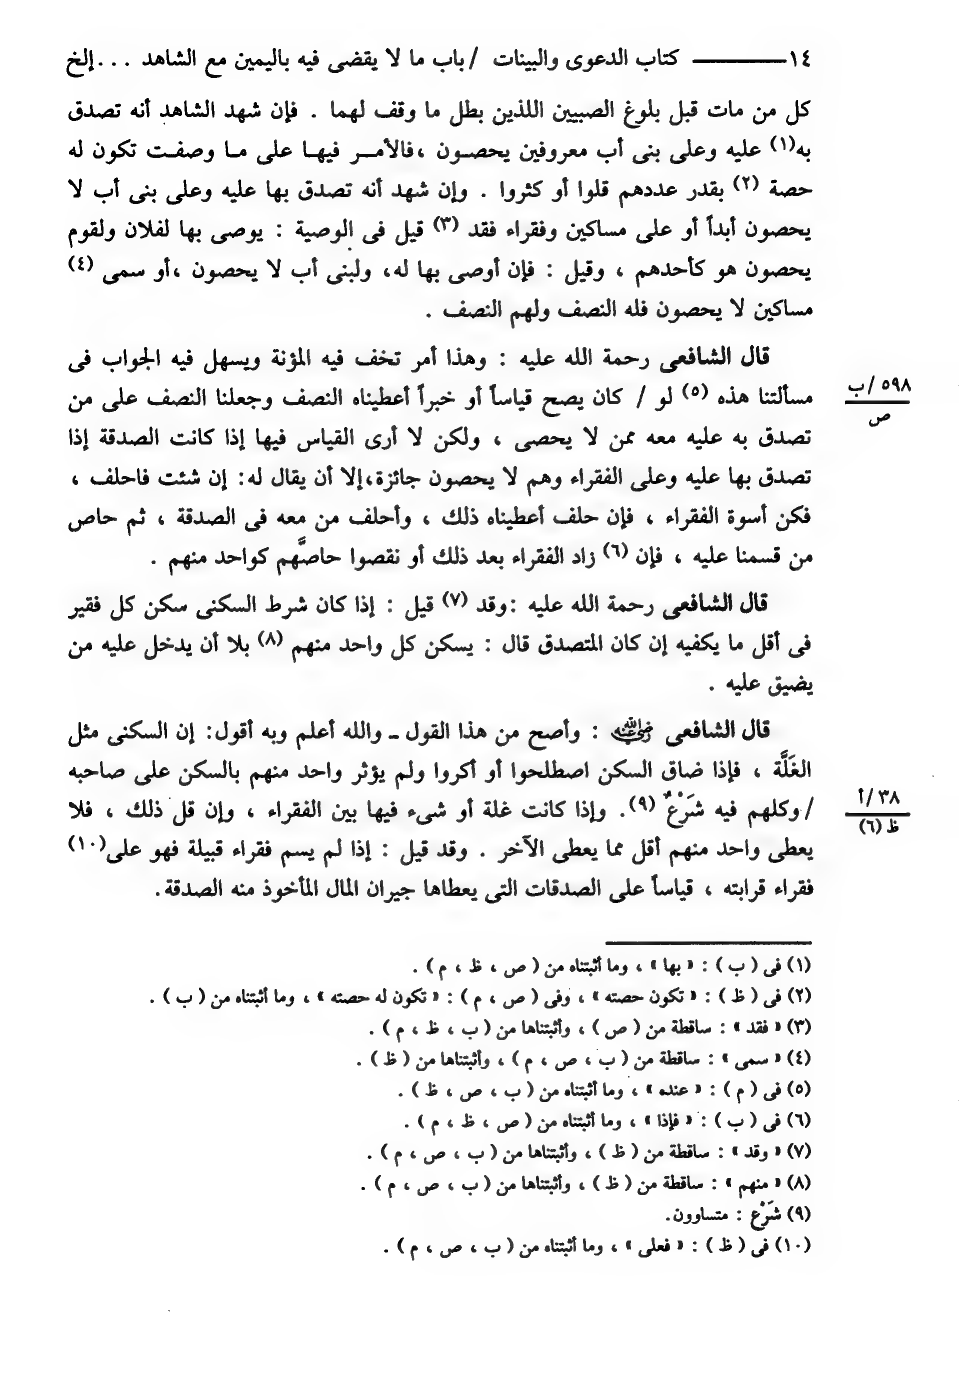 ١٤ ——— كتاب الدعوى والبينات / باب ما لا يقضى فيه باليمين مع الشاهد ... إلخ
كل من مات قبل بلوغ الصبيين اللذين بطل ما وقف لهما . فإن شهد الشاهد أنه تصدق
به(١) عليه وعلى بنى أب معروفين يحصون ،فالأمـر فيهـا على مـا وصفـت تكون له
حصة (٢) بقدر عددهم قلوا أو كثروا . وإن شهد أنه تصدق بها عليه وعلى بنى أب لا
يحصون أبداً أو على مساكين وفقراء فقد (٣) قيل فى الوصية : يوصى بها لفلان ولقوم
يحصون هو كأحدهم ، وقيل : فإن أوصى بها له، ولبنى أب لا يحصون ،أو سمى (٤)
مساكين لا يحصون فله النصف ولهم النصف .
قال الشافعى رحمة الله عليه : وهذا أمر تخف فيه المؤنة ويسهل فيه الجواب فى
مسألتنا هذه (٥) لو / كان يصح قياساً أو خبراً أعطيناه النصف وجعلنا النصف على من
تصدق به عليه معه ممن لا يحصى ، ولكن لا أرى القياس فيها إذا كانت الصدقة إذا
تصدق بها عليه وعلى الفقراء وهم لا يحصون جائزة،إلا أن يقال له: إن شئت فاحلف ،
فكن أسوة الفقراء ، فإن حلف أعطيناه ذلك ، وأحلف من معه فى الصدقة ، ثم حاص
من قسمنا عليه ، فإن (٦) زاد الفقراء بعد ذلك أو نقصوا حاصَّهم كواحد منهم .
قال الشافعى رحمة الله عليه :وقد (٧) قيل : إذا كان شرط السكنى سكن كل فقير
فى أقل ما يكفيه إن كان المتصدق قال : يسكن كل واحد منهم (٨) بلا أن يدخل عليه من
يضيق عليه .
قال الشافعى رضي الله عنه : وأصح من هذا القول ــ والله أعلم وبه أقول: إن السكنى مثل
الغَلَّة ، فإذا ضاق السكن اصطلحوا أو أكروا ولم يؤثر واحد منهم بالسكن على صاحبه
/ وكلهم فيه شَرْعٌ (٩). وإذا كانت غلة أو شىء فيها بين الفقراء ، وإن قل ذلك ، فلا
يعطى واحد منهم أقل مما يعطى الآخر . وقد قيل : إذا لم يسم فقراء قبيلة فهو على(١٠)
فقراء قرابته ، قياساً على الصدقات التى يعطاها جيران المال المأخوذ منه الصدقة.
٥٩٨ /ب
ص
٣٨ /أ
ظ (٦)
(١) فى ( ب ) : « بها » ، وما أثبتناه من ( ص ، ظ ، م ) .
(٢) فى ( ظ ) : « تكون حصته » ، وفى ( ص ، م ) : « تكون له حصته » ، وما أثبتناه من ( ب ) .
(٣) « فقد » : ساقطة من ( ص ) ، وأثبتناها من ( ب ، ظ ، م ) .
(٤) « سمى » : ساقطة من ( ب ، ص ، م ) ، وأثبتناها من ( ظ ) .
(٥) فى ( م ) : « عنده » ، وما أثبتناه من ( ب ، ص ، ظ ) .
(٦) فى ( ب ) : « فإذا » ، وما أثبتناه من ( ص ، ظ ، م ) .
(٧) « وقد » : ساقطة من ( ظ ) ، وأثبتناها من ( ب ، ص ، م ) .
(٨) « منهم » : ساقطة من ( ظ ) ، وأثبتناها من ( ب ، ص ، م ) .
(٩) شَرْعٌ : متساوون.
(١٠) فى ( ظ ) : « فعلى » ، وما أثبتناه من ( ب ، ص ، م ) .